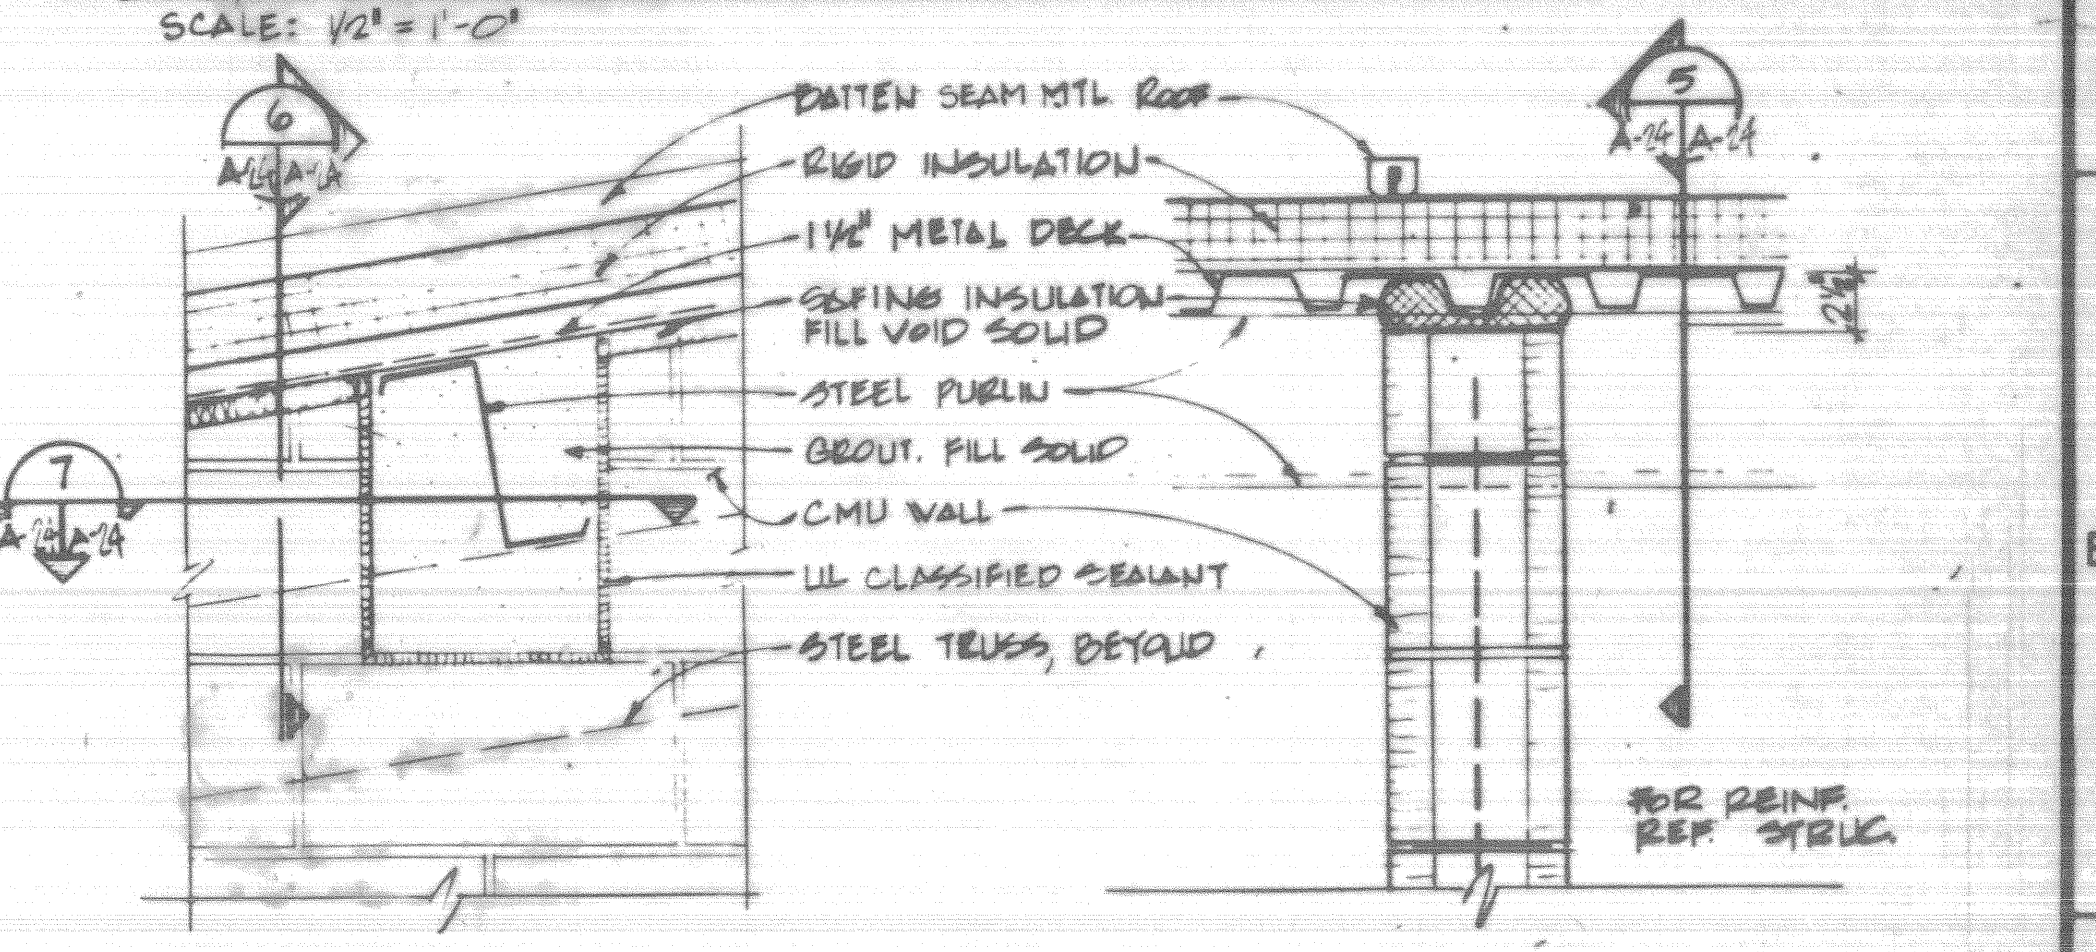 SCALE: 1/2" = 1'-0"
6
A-24 A-24
5
A-24 A-24
BATTEN SEAM MTL. ROOF
RIGID INSULATION
1 1/2" METAL DECK
SAFING INSULATION
FILL VOID SOLID
2 1/2"
STEEL PURLIN
GROUT. FILL SOLID
7
A-24 A-24
CMU WALL
UL CLASSIFIED SEALANT
STEEL TRUSS, BEYOND
FOR REINF.
REF. STRUC.